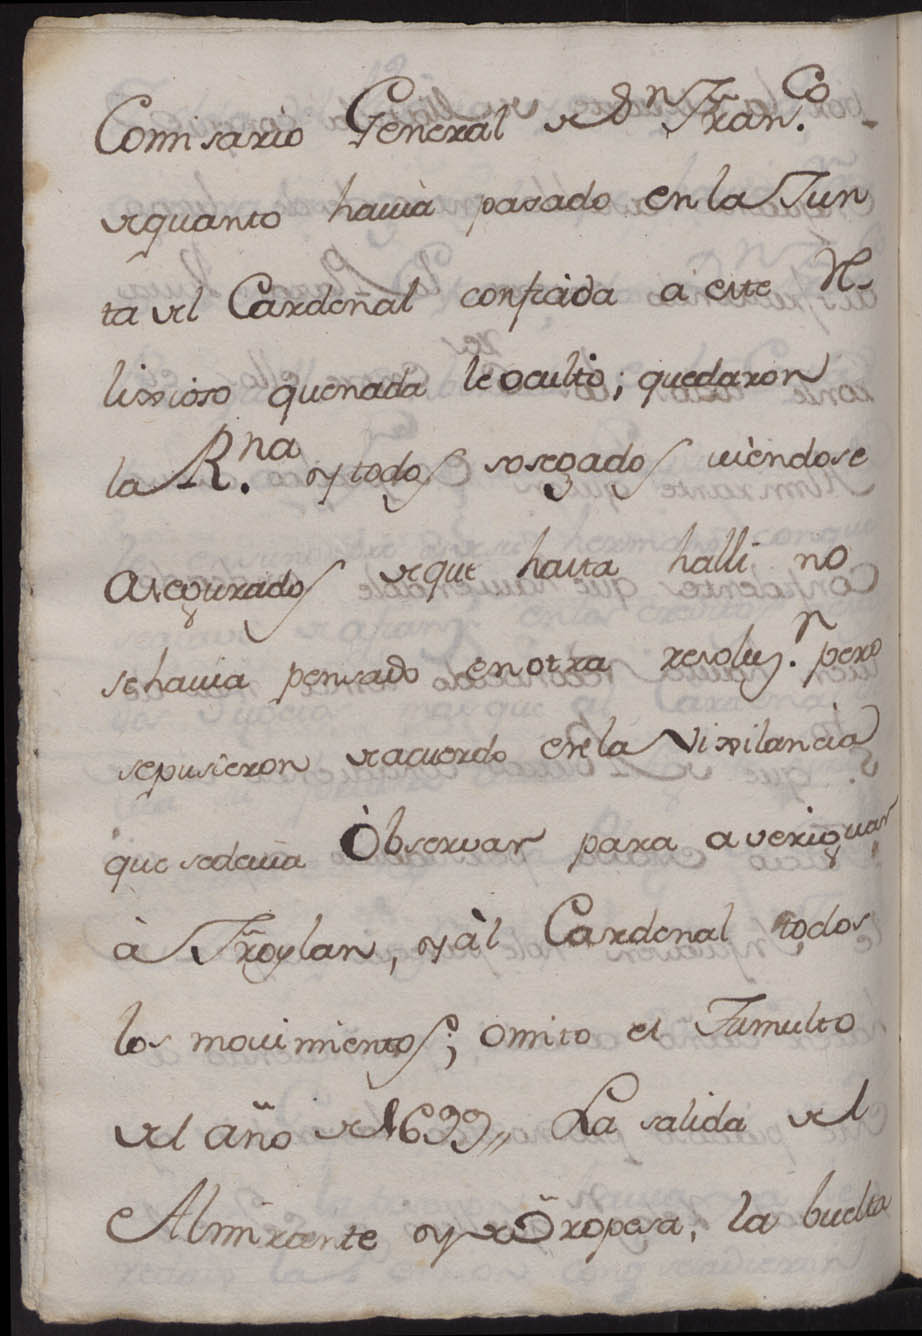 Comisario General de Sn Fran.co
de quanto havia pasado en la Jun
ta del Cardenal conficida a este Re-
lixioso que nada le oculto; quedaron
la R.na y todos sosegados viendose
asegurados de que hasta halli no
se havia pensado en otra resoluz.n pero
se pusieron de acuerdo en la Vixilancia
que se devia Observar para averiguar
à Froylan, y àl Cardenal todos
los movimientos; omito el Tumulto
del año de 1699,, La salida del
Almirante y de Oropesa; la buelta